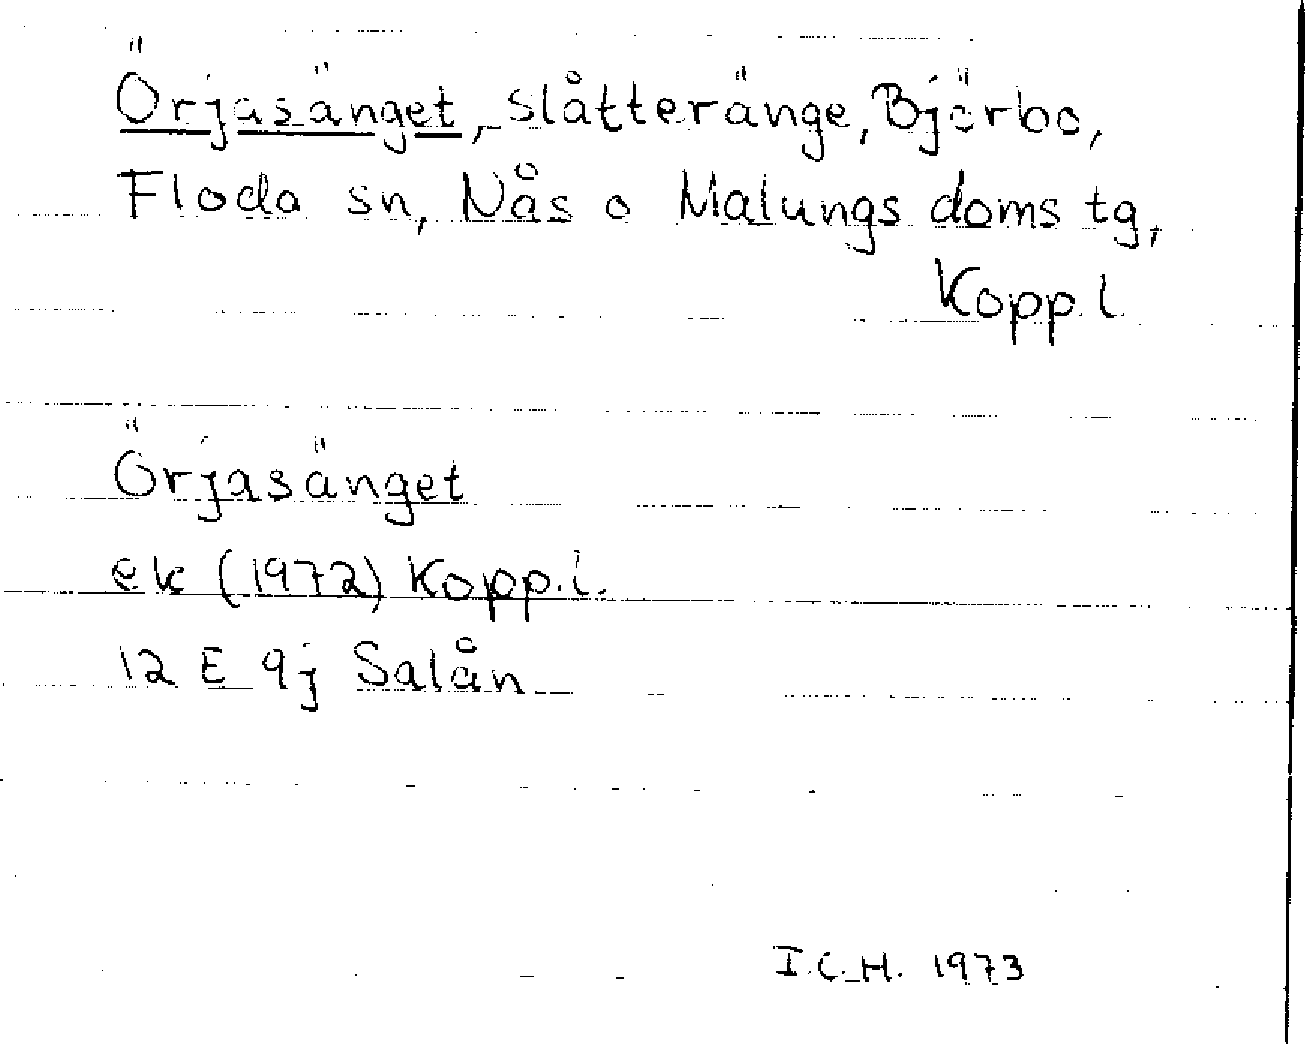 Örjasänget, slåtteränge, Björbo,
Floda sn, Nås o Malungs doms tg,
Kopp. l.
Örjasänget
ek (1972) Kopp. l.
12 E 9j Salån
I.C.H. 1973